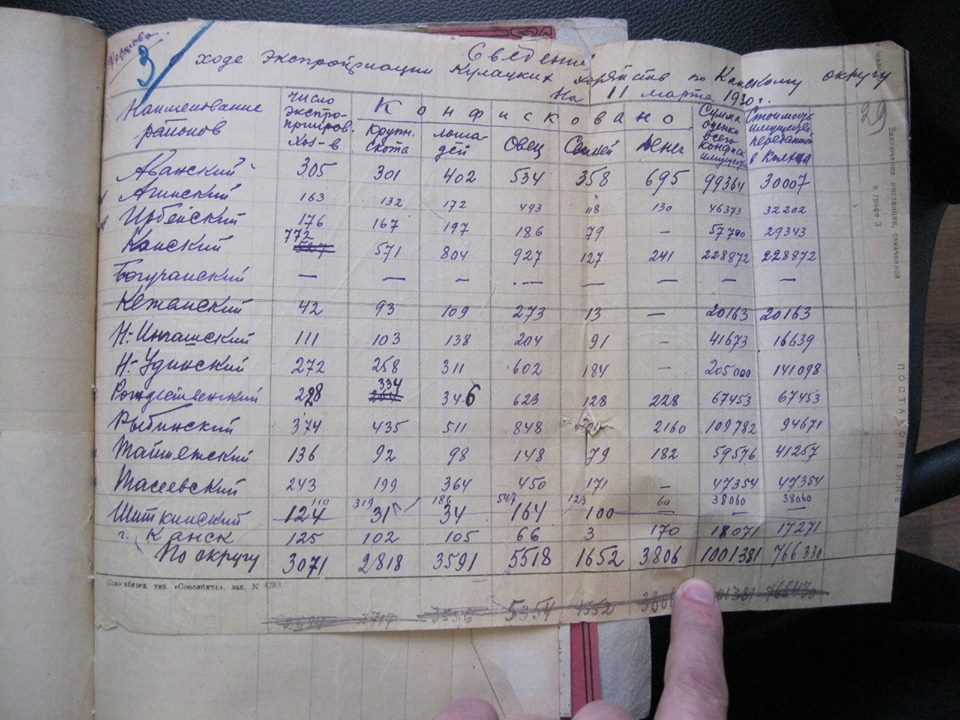 3
Сведения
о ходе экспроприации кулацких хозяйств по Канскому округу
На 11 марта 1930 г.
29
Наименование районов | Число экспроприиров. хоз-в | Конфисковано | Сумма оценки всего конфиск. имущес. | Стоимость имущества переданного в колхоз
крупн. скота | лошадей | Овец | Свиней | Денег
Абанский 305 301 402 534 358 695 99364 30007
Агинский 163 132 172 493 118 130 46373 32202
Ирбейский 176 167 197 186 79 — 57790 29343
Канский 772 571 804 927 127 241 228872 228872
Богучанский — — — — — — — —
Кежемский 42 93 109 273 13 — 20163 20163
Н-Ингашский 111 103 138 204 91 — 41673 16639
Н-Удинский 272 258 311 602 184 — 205000 141098
Рождественский 228 334 346 623 128 228 67453 67453
Рыбинский 374 435 511 848 2160 109782 94671
Тайшетский 136 92 98 148 79 182 59576 41257
Тасеевский 243 199 364 450 171 — 47354 47354
110 319 186 547 123 60 38060 38060
Шиткинский 124 31 34 164 100 — — —
г. Канск 125 102 105 66 3 170 18071 17271
По округу 3071 2818 3591 5518 1652 3806 1001381 766330
Новосибирск, тип. «Совсибирь», зак. № 4783.
5354 1552
Заключение инстанции, означенной
в графе 3
ПОСТАНОВЛЕНИЕ